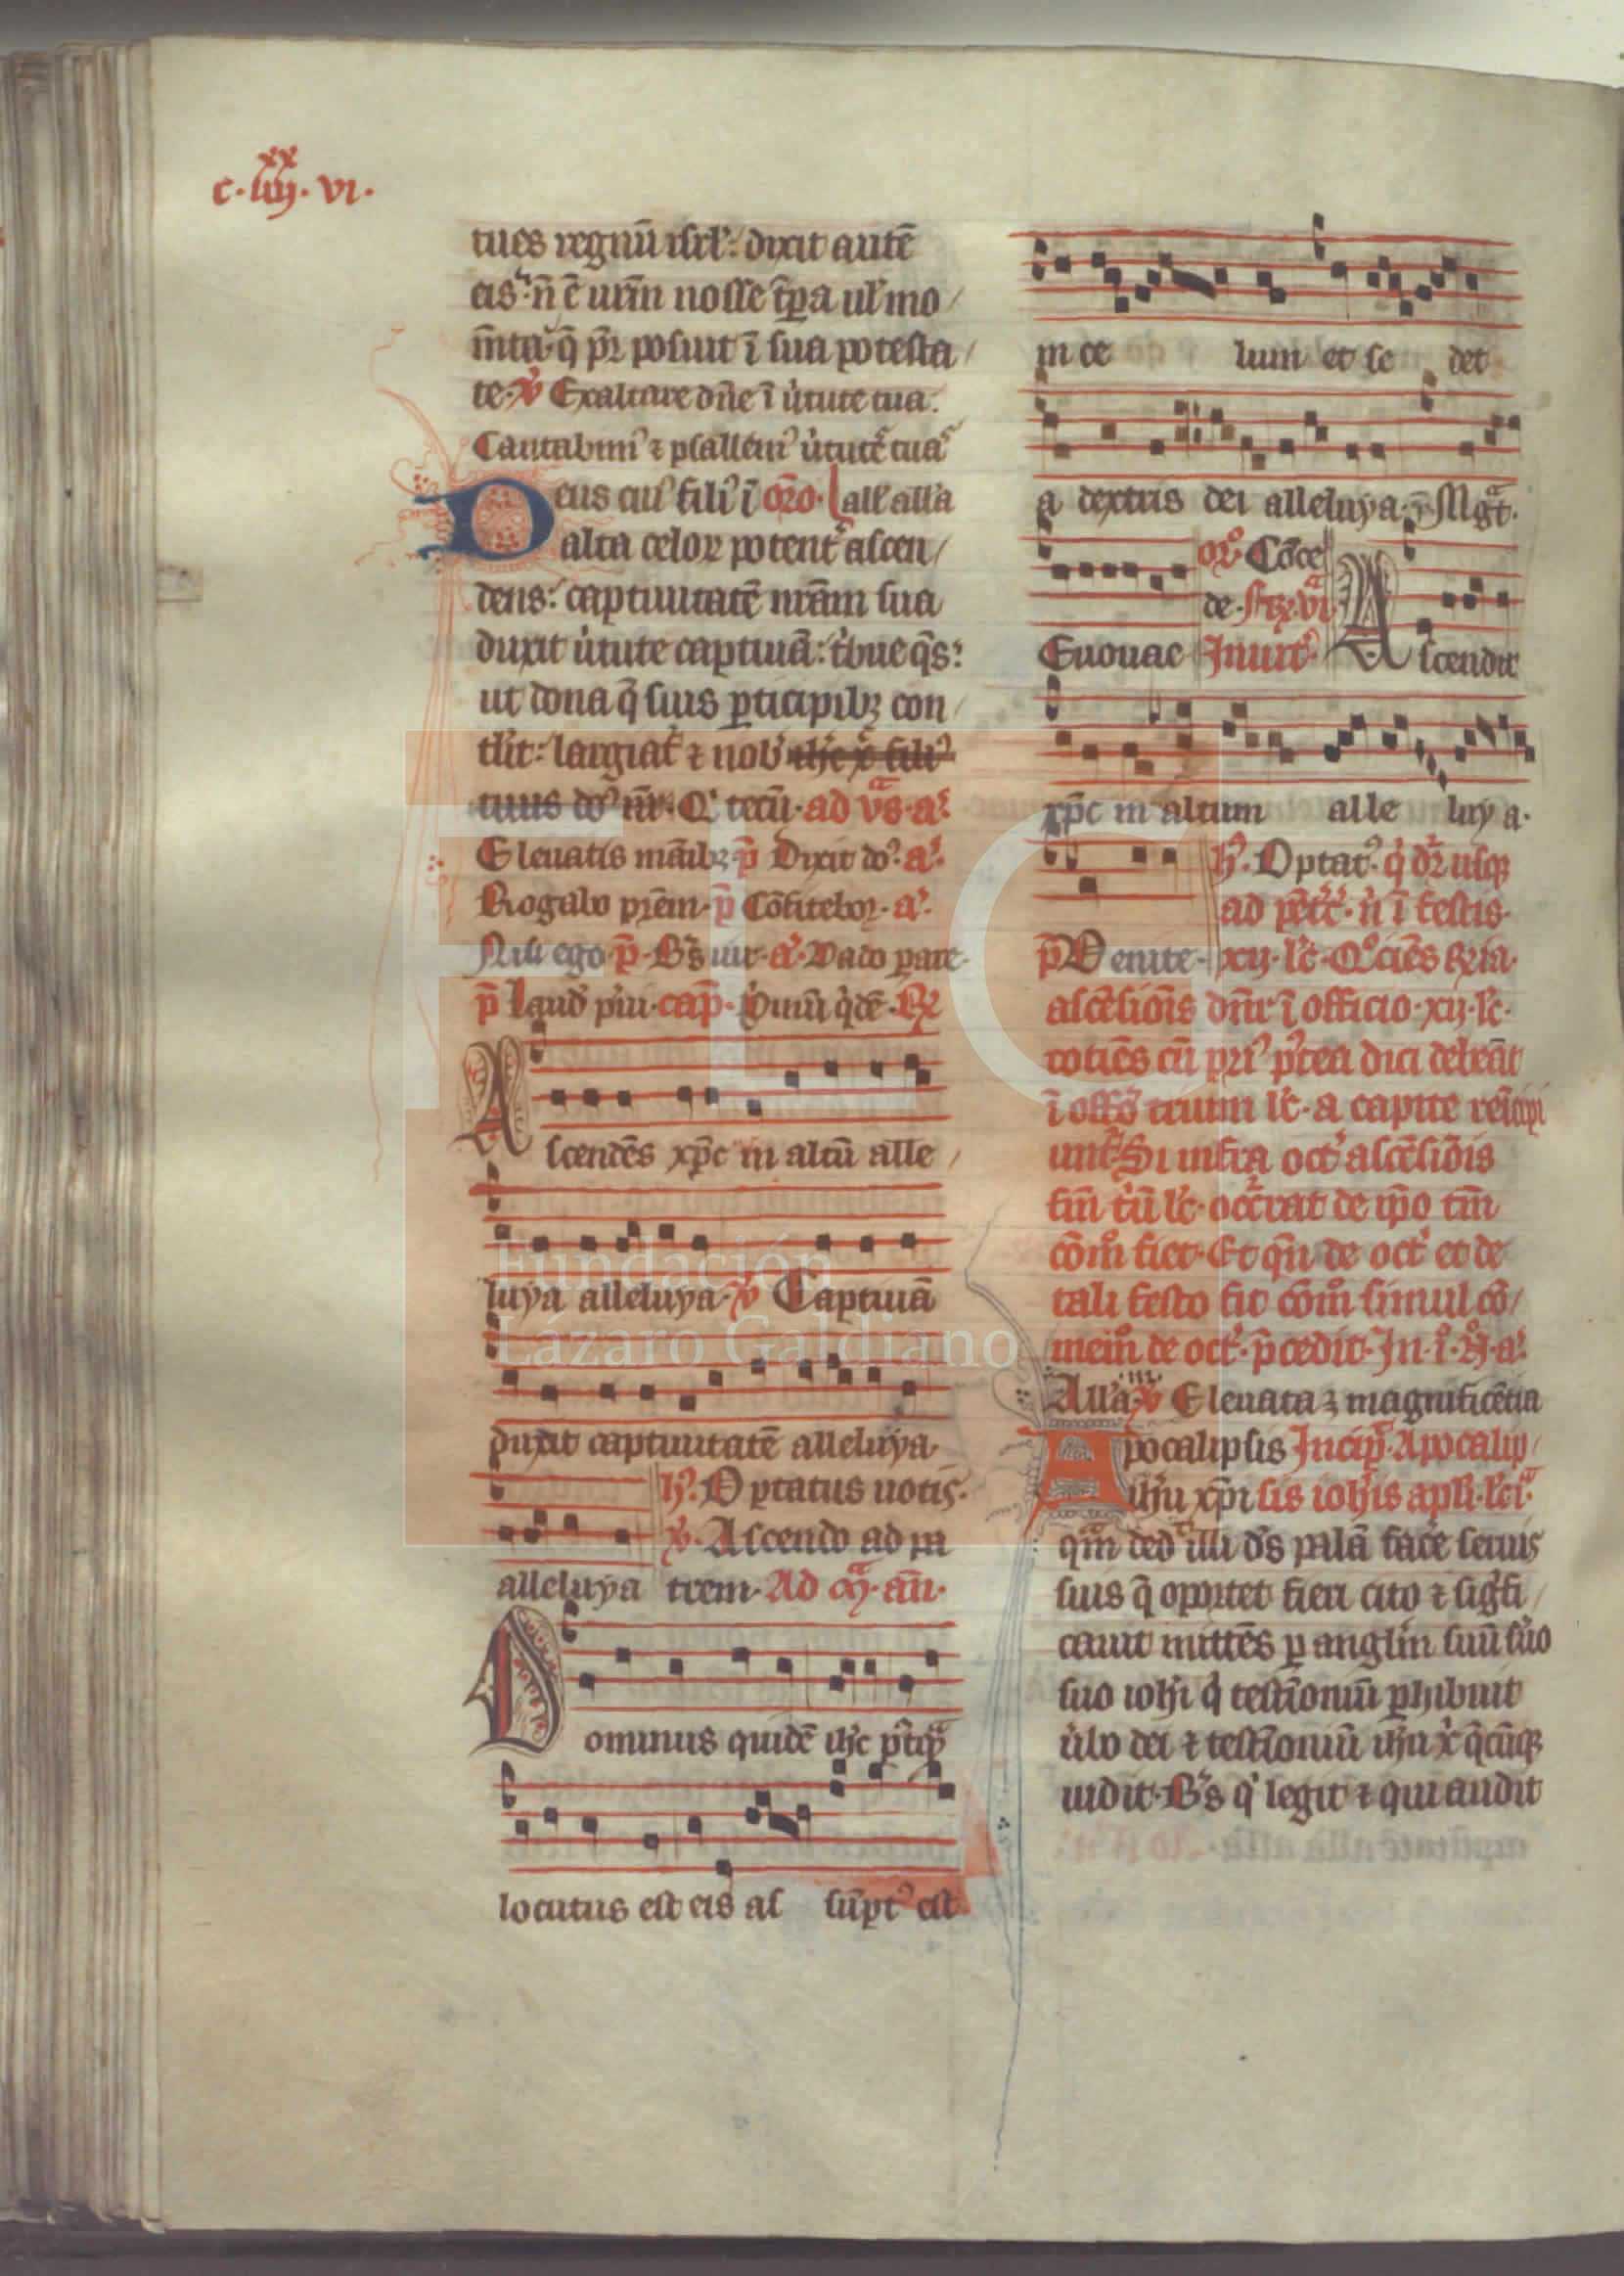 c. lıııj. vı.
xx
tues regnū isrl': dixit autē
eis. n̄ ē urm̄ nosse tp̄a ul' mo
m̄ta q̄ pr̄ posuit ī sua potesta
te. ℣ Exaltare dn̄e ī u̓tute tua.
Cantabim' ⁊ psallem' u̓tutes tuas
Deus cui' fili' ī oro. all' all'a
alta celoꝝ potent' ascen
dens: captiuitatē nr̄am sua
duxit u̓tute captiuā: t'bue q̄s:
ut dona q̄ suis ꝑticipibꝫ con
tl'it: largiat' ⁊ nob' ihc xp̄ fili'
tuus do' nr̄. Q' tecū. ad v̄s. a'.
Eleuatis mānibꝫ p̄ Dixit do'. a'.
Rogabo pr̄em. p̄ Cōfitebor. a'.
Nisi ego. p̄. Bs̄ uir. a'. Vado ꝑare.
p̄ Laud' p'ui. cap̄. P'mū q'dē. R̄
Ascendēs xp̄c in altū alle
luya alleluya. ℣ Captiuā
duxit captiuitatē alleluya.
h'. Optatus uotis.
℣. Ascendo ad pa
alleluya trem. Ad m̄. an̄.
Dominus quidē ihc pꝰtꝗ̄
locutus est eis as sūpt' est
in ce lum et se det
a dextris dei alleluya. p̄ Mgt̄.
or'. Cōce
de. fr̄. vi.
Euouae Inuit'. Ascendit
xp̄c in altum alle luya.
h'. Optat'. q' dr̄ usqꝫ
ad pētēc. n̄ ī festis.
p̄ Venite. xij. lc̄. Q°ciēs fr̄ia.
ascēsiōis dn̄i ī officio. xij. lc̄.
tociēs cū pri' p'tea dici debeāt
ī offō trium lc̄. a capite reīcipi
unt'. Si infra oct' ascēsiōis
fm̄ t'ū lc̄. occ'rat de ip̄o tm̄
cōm° fiet. Et qn̄ de oct' et de
tali festo fit cōm° simul cō
mem° de oct'. p̄cedit. In. i°. N°. a'.
All'a. iij. ℣ Eleuata ⁊ magnificētia
Apocalipsis Incip̄. Apocalip
ihu xp̄i sis ioh'is apl'i. lc̄. i.
qm̄ ded' illi ds̄ palā face̓ seruis
suis q̄ oportet fieri cito ⁊ sig'fi
cauit mittēs ꝑ angl'm suū s'uo
suo ioh'i q' testīoniū ꝑhibuit
u̓bo dei ⁊ testīoniū ihu x' q̄cūqꝫ
uidit. Bs̄ q' legit ⁊ qui audit
Fundación
Lázaro Galdiano
FLG